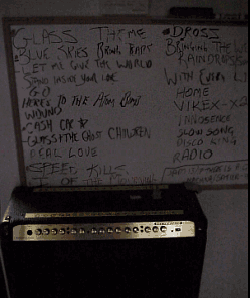 GLASS THEME
BLUE SKIES BRING
LET ME GIVE THE WORLD
STAND INSIDE YOUR LOVE
GO
HERES TO THE ATOM BOMB
WOUND
CASH CAR
GLASS + THE GHOST CHILDREN
REAL LOVE
SPEED KILLS
OF THE MOURNING
DROSS
BRINGING THE
RAINDROPS
WITH EVERY L
HOME
INNOSENCE
SLOW SONG
DISCO KING
RADIO